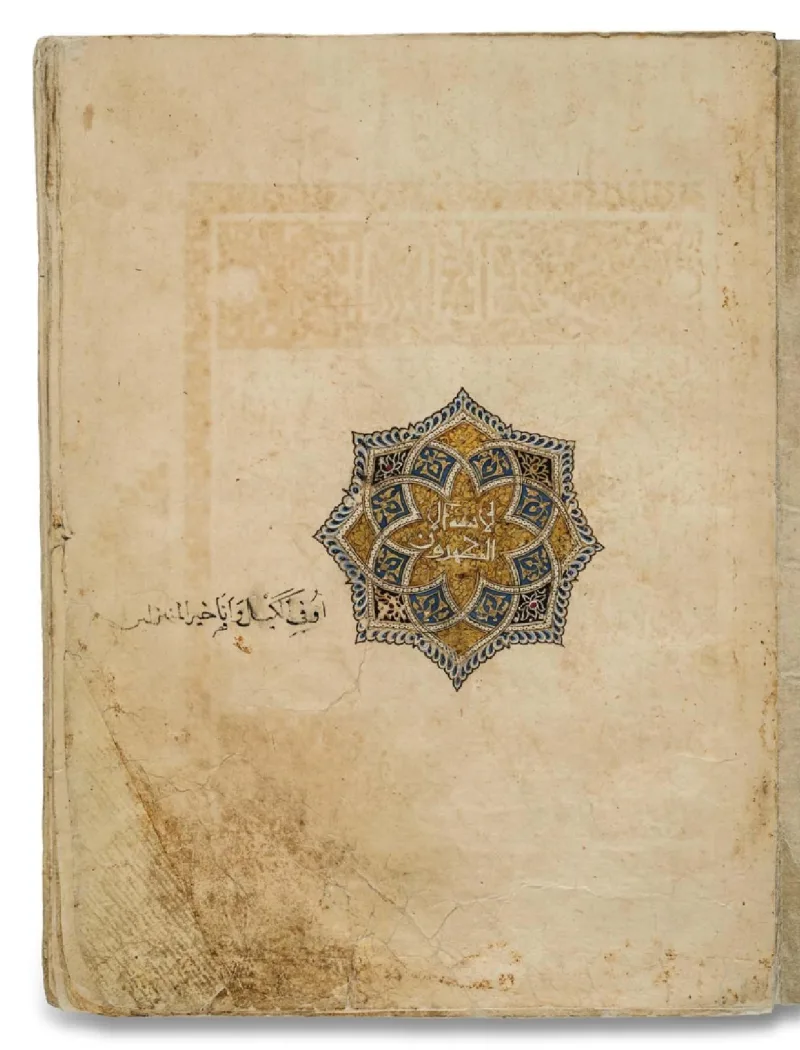 لا يمسه الا
المطهرون
أُوفِي ٱلْكَيْلَ وَأَنَا خير المنزلين